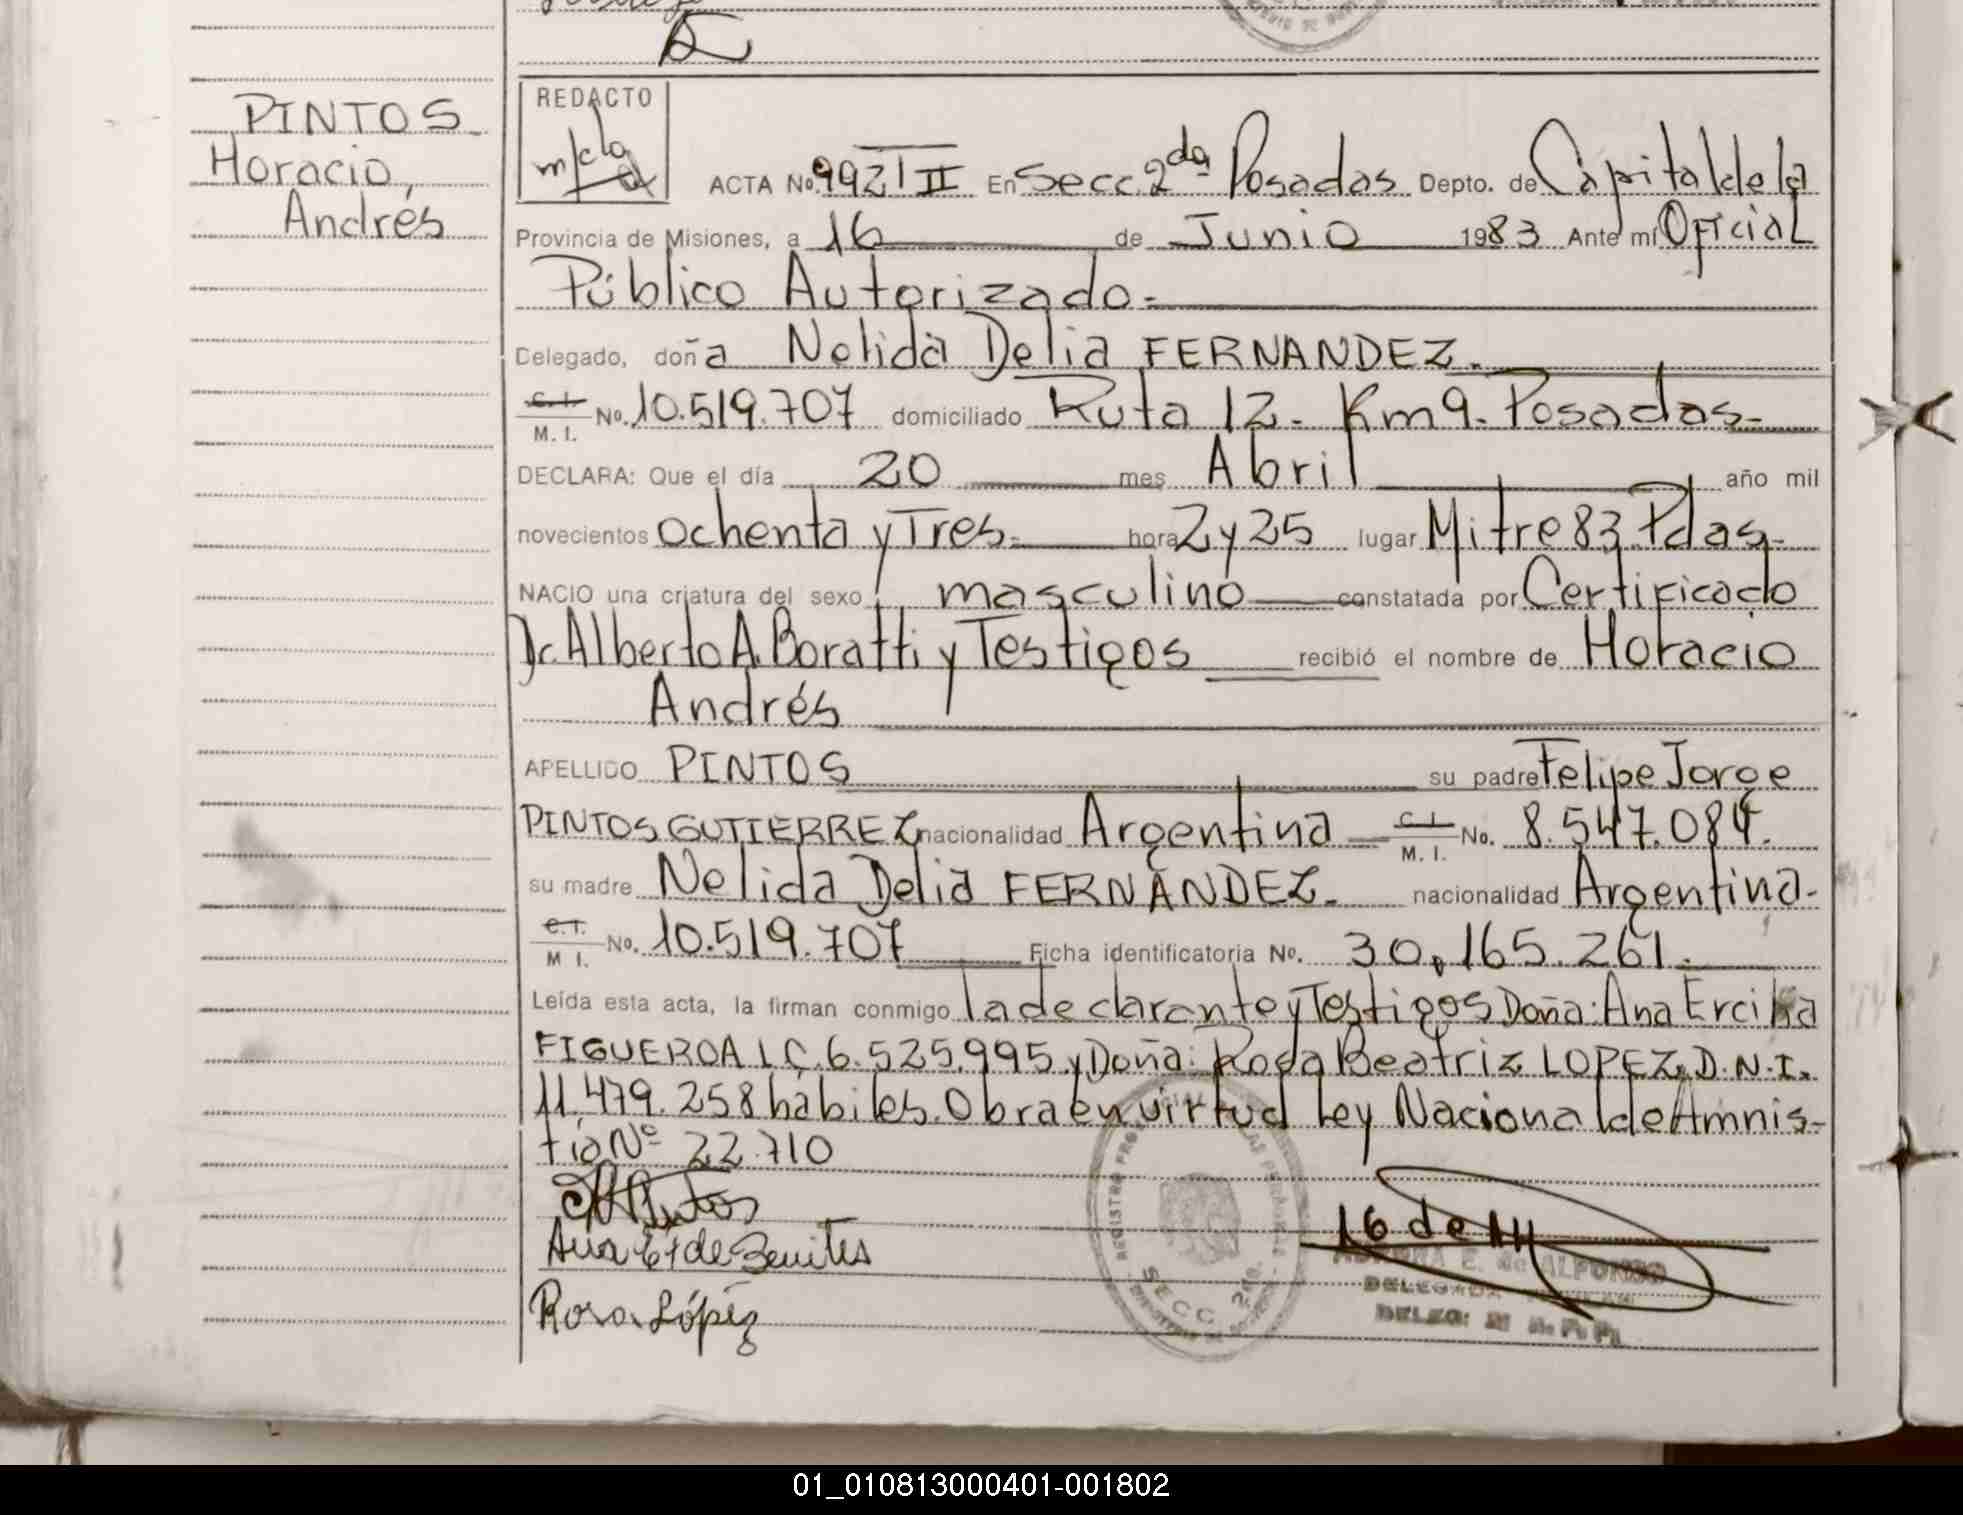 PINTOS
Horacio,
Andrés
REDACTO
ACTA No. 992 T II En Secc. 2da Posadas Depto. de Capital de la
Provincia de Misiones, a 16 de Junio 1983 Ante mí Oficial
Público Autorizado.-
Delegado, doña Nelida Delia FERNANDEZ.
C.I. M. I. No. 10.519.707 domiciliado Ruta 12 - Km 9 - Posadas-
DECLARA: Que el día 20 mes Abril año mil
novecientos ochenta y Tres. hora 2 y 25 lugar Mitre 83 Pdas-
NACIO una criatura del sexo masculino constatada por Certificado
Dr. Alberto A. Boratti y Testigos recibió el nombre de Horacio
Andrés
APELLIDO PINTOS su padre Felipe Jorge
PINTOS GUTIERREZ nacionalidad Argentina C.I. M. I. No. 8.547.084.
su madre Nelida Delia FERNANDEZ. nacionalidad Argentina-
C.I. M I. No. 10.519.707 Ficha identificatoria No. 30,165.261.
Leída esta acta, la firman conmigo la declarante y Testigos Doña: Ana Ercilia
FIGUEROA L C. 6.525.995 y Doña: Rosa Beatriz LOPEZ D.N.I.
11.479.258 hábiles. Obra en virtud Ley Nacional de Amnis-
tía Nº 22.710
Pintos
Ana de Benites
Rosa López
REGISTRO
SECC. 2da.
16 de
E. de ALFONSO
DELEGADA
DELEG:
01_010813000401-001802